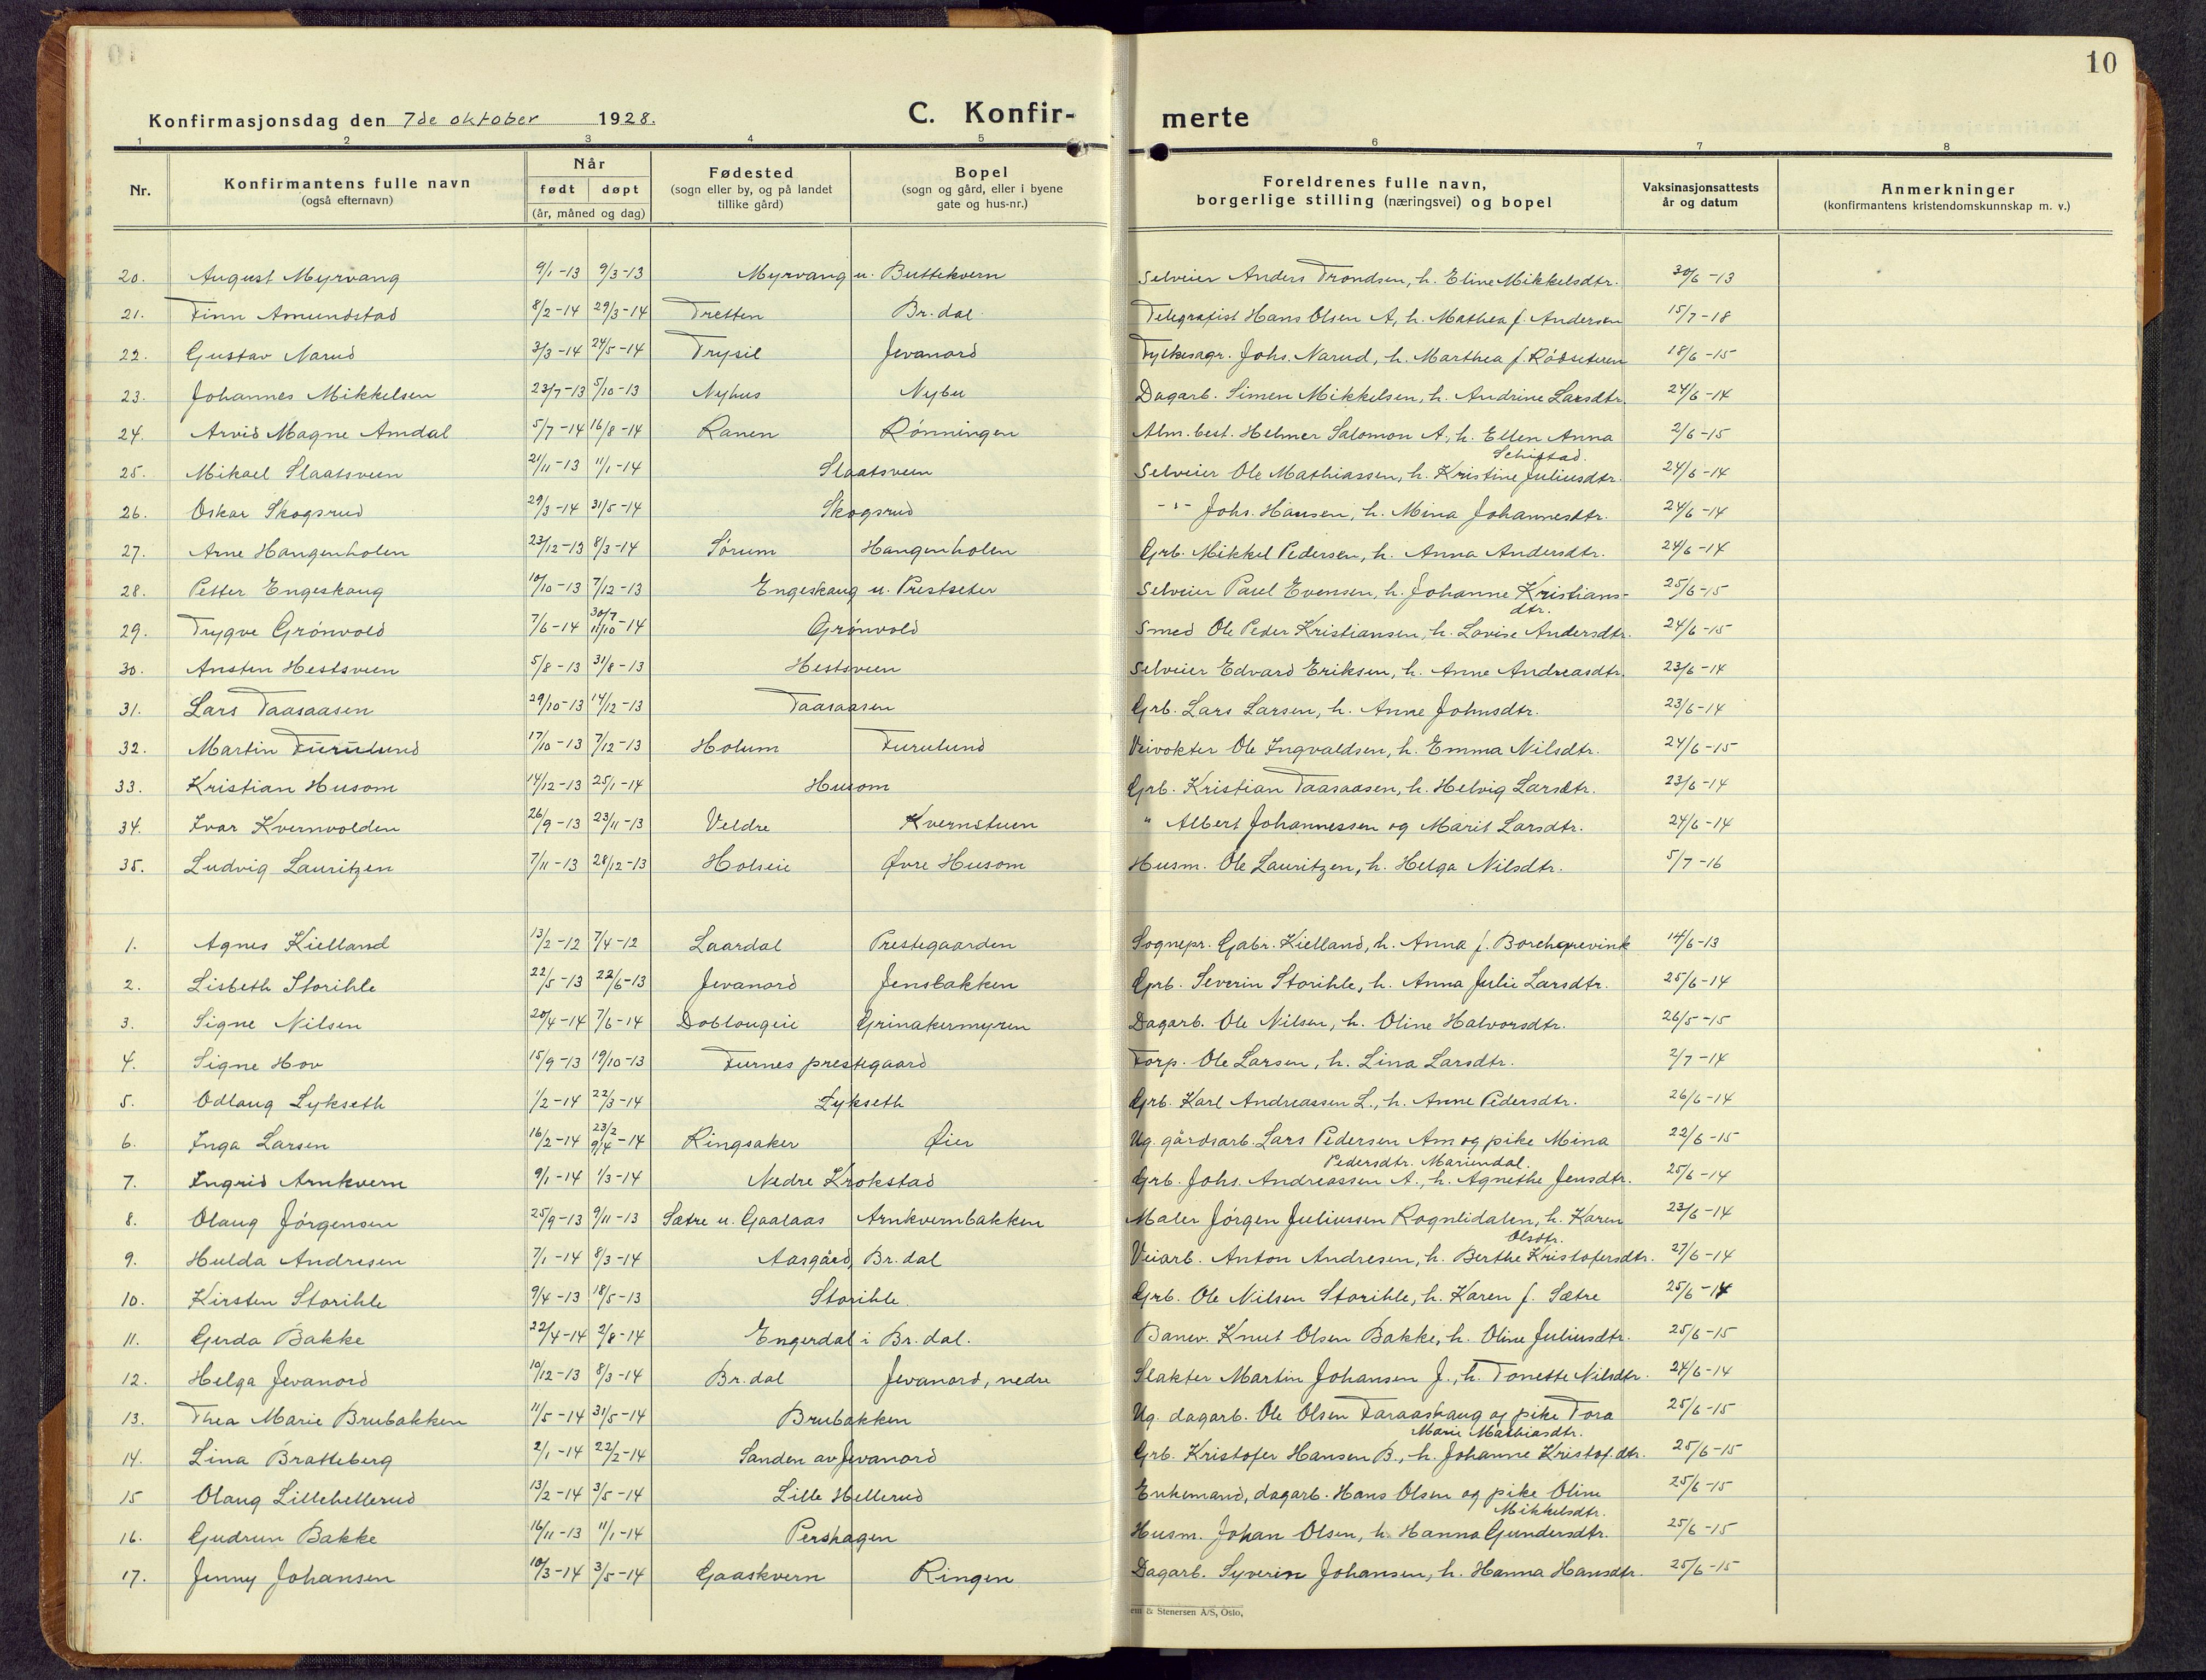 10
Konfirmasjonsdag den 7de oktober 1928. C. Konfir- merte
1 2 3 4 5 6 7 8
Nr. Konfirmantens fulle navn (også efternavn) Når født døpt (år, måned og dag) Fødested (sogn eller by, og på landet tillike gård) Bopel (sogn og gård, eller i byene gate og hus-nr.) Foreldrenes fulle navn, borgerlige stilling (næringsvei) og bopel Vaksinasjonsattests år og datum Anmerkninger (konfirmantens kristendomskunnskap m. v.)
20. August Myrvang 9/1-13 9/3-13 Myrvang u. Buttekvern Selveier Anders Trondsen, h. Eline Mikkelsdtr. 30/6-13
21. Finn Amundstad 8/2-14 29/3-14 Tretten Br. dal. Telegrafist Hans Olsen A, h. Mathea f. Andersen 15/7-18
22. Gustav Narud 3/3-14 24/5-14 Trysil Jevanord Fylkesagr. Johs. Narud, h. Marthea f. 18/6-15
23. Johannes Mikkelsen 23/7-13 5/10-13 Nyhus Nybu Dagarb. Simen Mikkelsen, h. Andrine Larsdtr. 24/6-14
24. Arvid Magne Amdal 5/7-14 16/8-14 Ranen Rönningen Alm. best. Helmer Salomon A, h. Ellen Anna Schistad. 2/6-15
25. Mikael Slaatsveen 21/11-13 11/1-14 Slaatsveen Selveier Ole Mathiassen, h. Kristine Juliusdtr. 24/6-14
26. Oskar Skogsrud 29/3-14 31/5-14 Skogsrud -"- Johs. Hansen, h. Mina Johannesdtr. 24/6-14
27. Arne Hangenholen 23/12-13 8/3-14 Sörum Hangenholen Grb. Mikkel Pedersen, h. Anna Andersdtr. 24/6-14
28. Petter Engeskaug 10/10-13 7/12-13 Engeskaug u. Prestseter Selveier Paul Evensen, h. Johanne Kristians- dtr. 25/6-15
29. Trygve Grönvold 7/6-14 30/7 11/10-14 Grönvold Smed Ole Peder Kristiansen, h. Lovise Andersdtr. 24/6-15
30. Ansten Hestsveen 5/8-13 31/8-13 Hestsveen Selveier Edvard Eriksen, h. Anne Andreasdtr. 23/6-14
31. Lars Taasaasen 29/10-13 14/12-13 Taasaasen Grb. Lars Larsen, h. Anne Johnsdtr. 23/6-14
32. Martin Furulund 17/10-13 7/12-13 Holum Furulund Veivokter Ole Ingvaldsen, h. Emma Nilsdtr. 24/6-15
33. Kristian Husom 14/12-13 25/1-14 Husom Grb. Kristian Taasaasen, h. Helvig Larsdtr. 23/6-14
34. Ivar Kvernvolden 26/9-13 23/11-13 Veldre Kvernstuen " Albert Johannessen og Marit Larsdtr. 24/6-14
35. Ludvig Lauritzen 7/11-13 28/12-13 Holseie Øvre Husom Husm. Ole Lauritzen, h. Helga Nilsdtr. 5/7-16
1. Agnes Kielland 13/2-12 7/4-12 Laardal Prestegaarden Sognepr. Gabr. Kielland, h. Anna f. Borchgrevink 14/6-13
2. Lisbeth Storihle 22/5-13 22/6-13 Jevanord Jensbakken Grb. Severin Storihle, h. Anna Julie Larsdtr. 25/6-14
3. Signe Nilsen 20/4-14 7/6-14 Doblougeie Grinakermyren Dagarb. Ole Nilsen, h. Oline Halvorsdtr. 26/5-15
4. Signe Hov 15/9-13 19/10-13 Furnes prestegaard Forp. Ole Larsen, h. Lina Larsdtr. 2/7-14
5. Odlaug Lykseth 1/2-14 22/3-14 Lykseth Grb. Karl Andreassen L., h. Anne Pedersdtr. 26/6-14
6. Inga Larsen 16/2-14 23/2 9/4-14 Ringsaker Øier Ug. gårdsarb. Lars Pedersen Am og pike Mina Pedersdtr. Mariendal. 22/6-15
7. Ingrid Arnkvern 9/1-14 1/3-14 Nedre Krokstad Grb. Johs. Andreassen A., h. Agnethe Jensdtr. 25/6-14
8. Olaug Jörgensen 25/9-13 9/11-13 Sætre u. Gaalaas Arnkvernbakken Maler Jörgen Juliussen Rognlidalen, h. Karen Olsdtr. 23/6-14
9. Hulda Andresen 7/1-14 8/3-14 Aasgård, Br. dal Veiarb. Anton Andresen, h. Berthe Kristofersdtr. 27/6-14
10. Kirsten Storihle 9/4-13 18/5-13 Storihle. Grb. Ole Nilsen Storihle, h. Karen f. Sætre 25/6-14
11. Gerda Bakke 22/4-14 2/8-14 Engerdal i Br. dal. Banev. Knut Olsen Bakke, h. Oline Juliusdtr. 25/6-15
12. Helga Jevanord 10/12-13 8/3-14 Br. dal Jevanord, nedre Slakter Martin Johansen J., h. Tonette Nilsdtr. 24/6-14
13. Thea Marie Brubakken 11/5-14 31/5-14 Brubakken Ug. dagarb. Ole Olsen Faraaskaug og pike Tora Marie Mathiasdtr. 25/6-15
14. Lina Bratteberg 2/1-14 22/2-14 Sanden av Jevanord Grb. Kristofer Hansen B., h. Johanne Kristof.dtr. 25/6-15
15 Olaug Lillehellerud 13/2-14 3/5-14 Lille Hellerud Enkemand, dagarb. Hans Olsen og pike Oline Mikkelsdtr. 25/6-15
16. Gudrun Bakke 16/11-13 11/1-14 Pershagen Husm. Johan Olsen, h. Hanna Gundersdtr. 25/6-15
17. Jenny Johansen 10/3-14 3/5-14 Gaaskvern Ringen Dagarb. Syverin Johansen, h. Hanna Hansdtr. 25/6-15
& Stenersen A/S, Oslo,